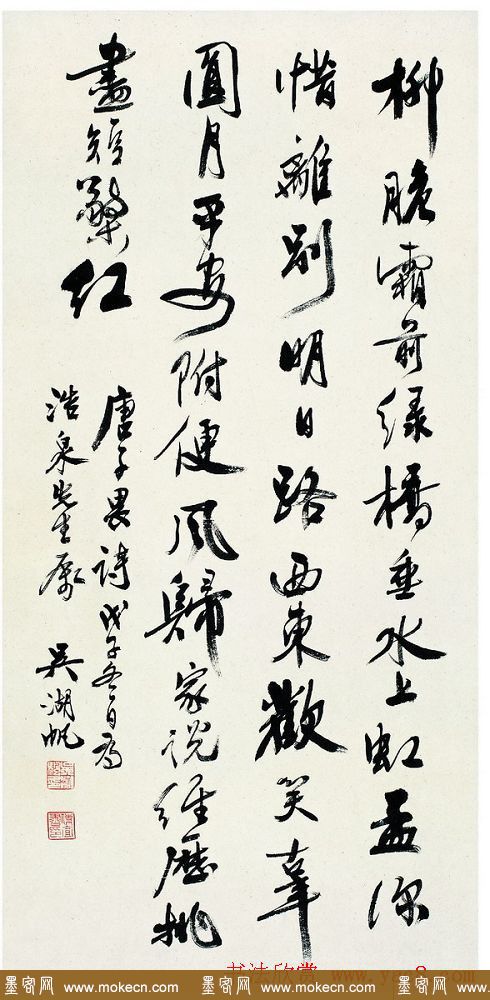 柳脆霜前绿橋垂水上虹盃深
惜離别明日路西東歡笑幸
圓月平安附便風歸家说經歷挑
盡短檠红
唐子畏詩戊子冬日為
浩泉先生属 吴湖帆
墨客网 www.mokecn.com 墨客网 www.mokecn.com 墨客网 www.mokecn.com